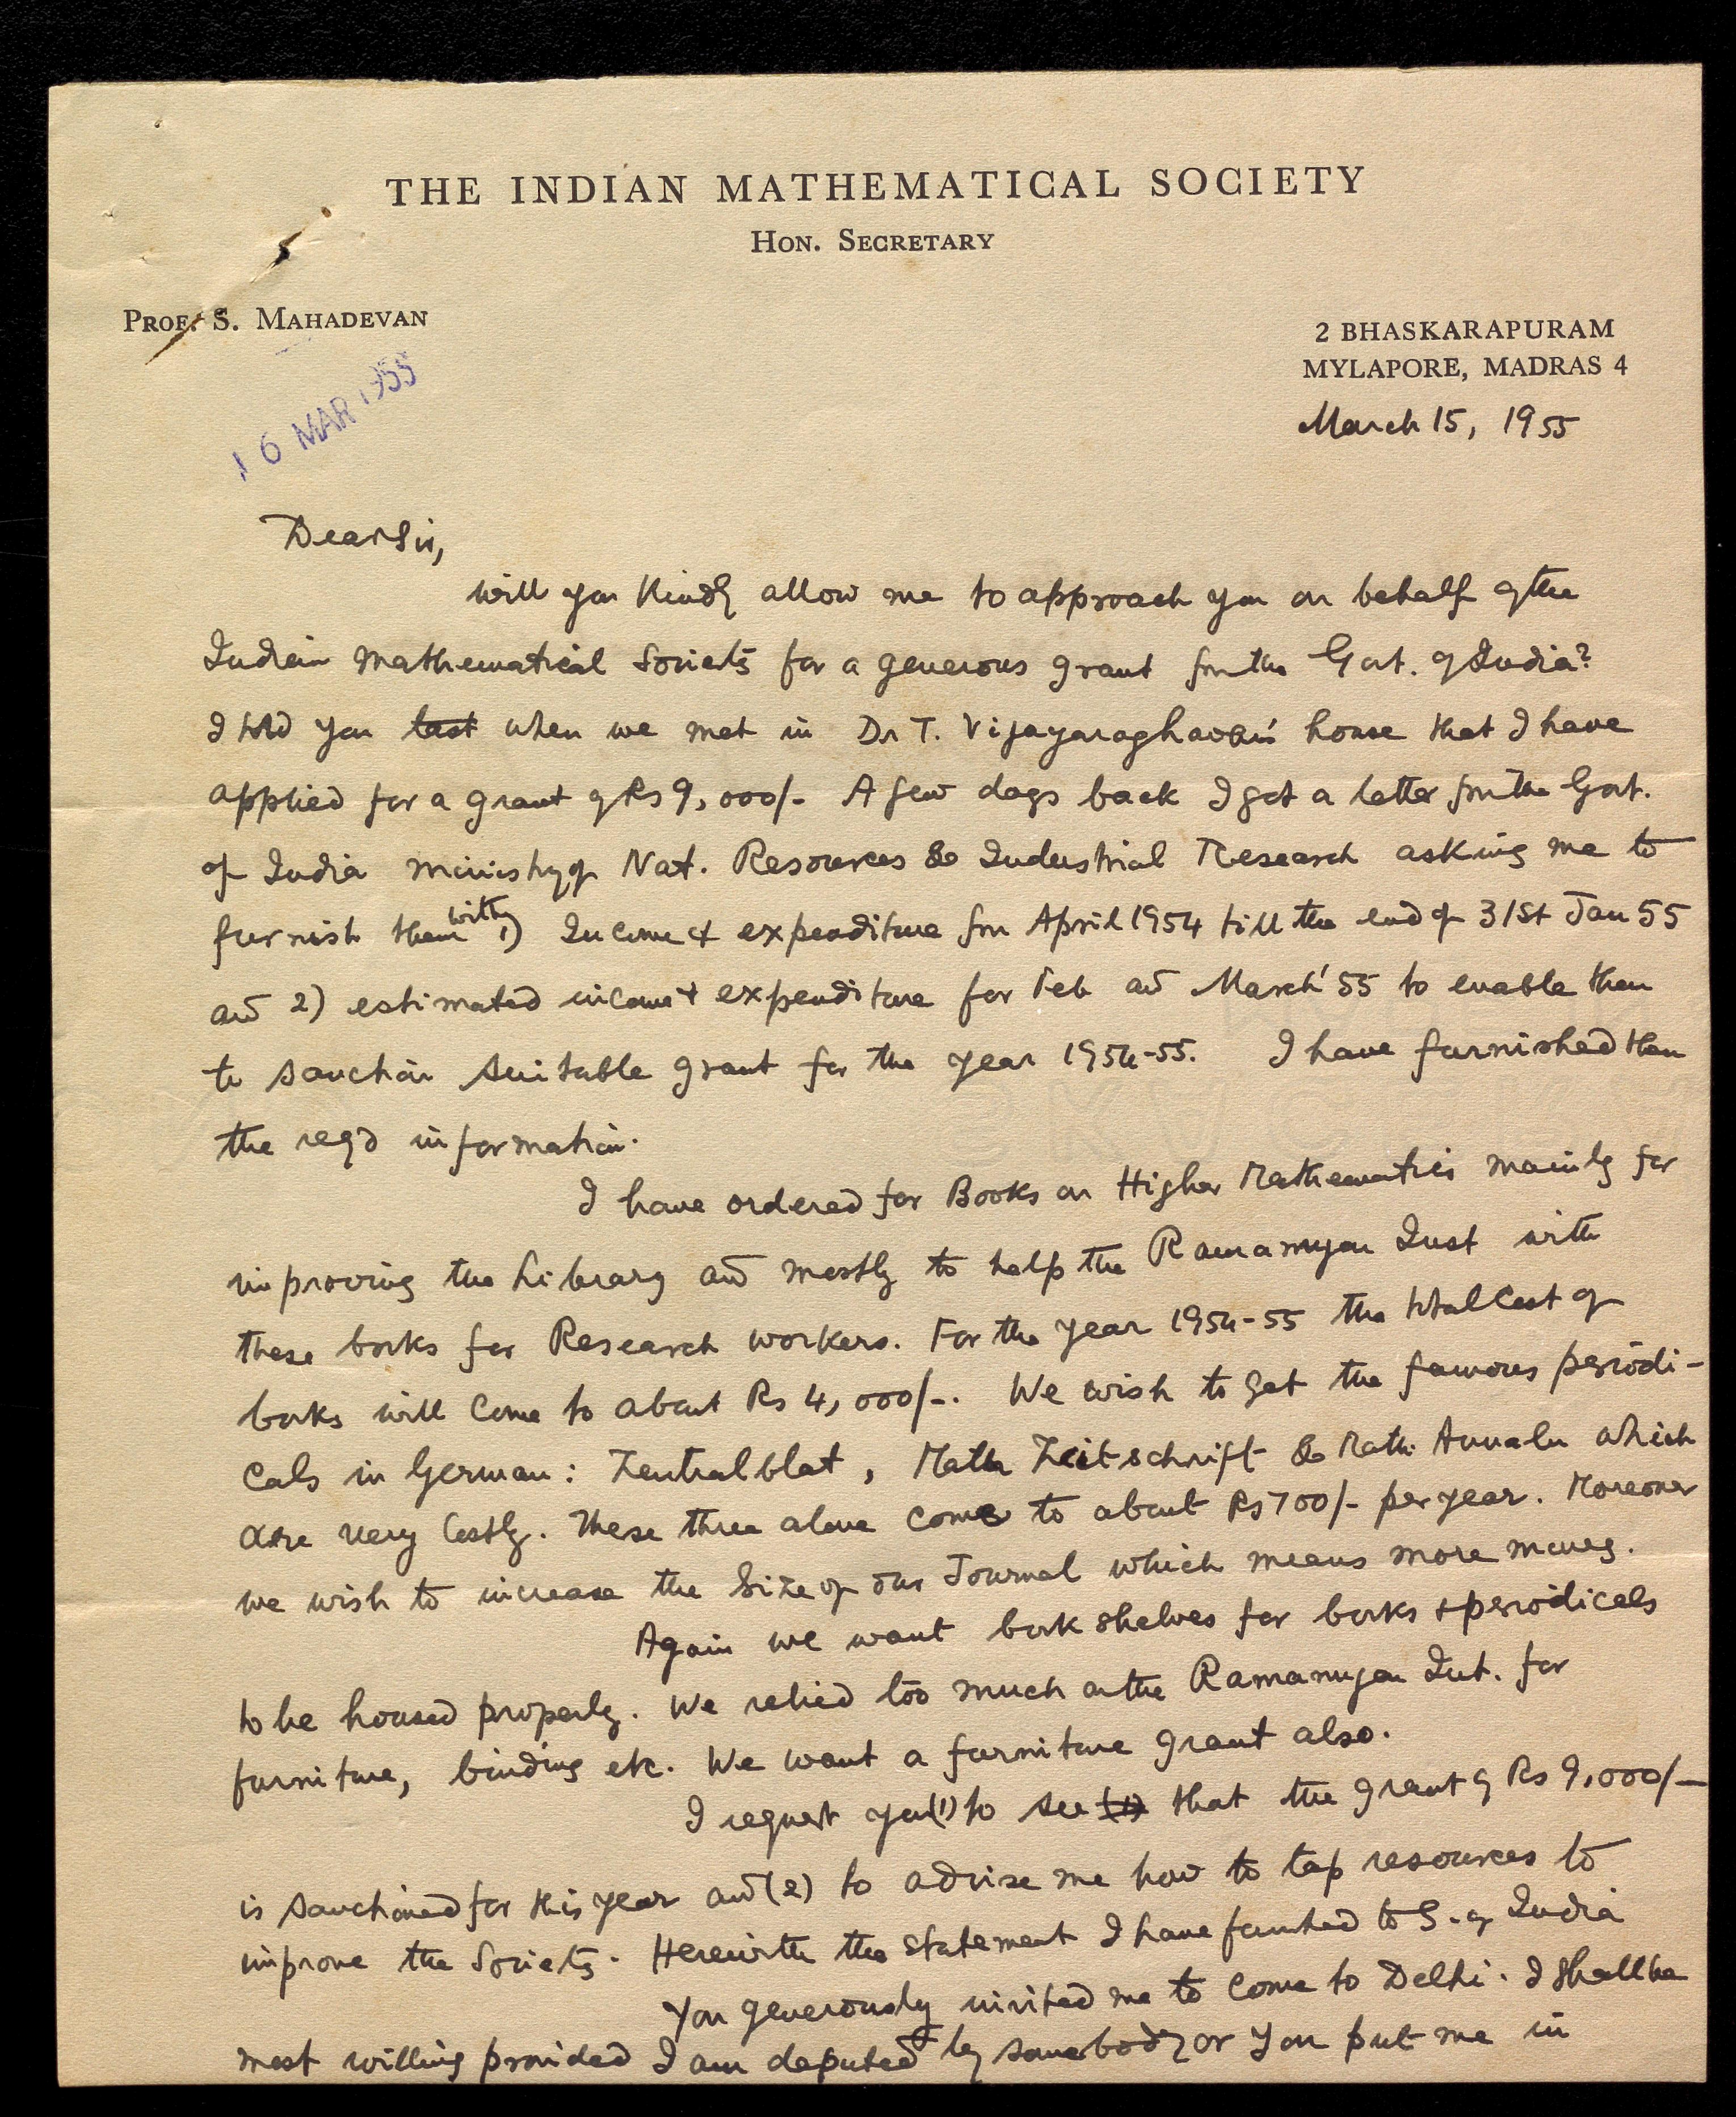 THE INDIAN MATHEMATICAL SOCIETY
HON. SECRETARY
PROF. S. MAHADEVAN
2 BHASKARAPURAM
MYLAPORE, MADRAS 4
16 MAR 1955
March 15, 1955
Dear Sir,
will you kindly allow me to approach you on behalf of the
Indian Mathematical Society for a generous grant from the Govt. of India?
I told you last when we met in Dr T. Vijayaraghavan's house that I have
applied for a grant of Rs 9,000/- A few days back I got a letter from the Govt.
of India Ministry of Nat. Resources & Industrial Research asking me to
furnish them with 1) Income & expenditure from April 1954 till the end of 31st Jan 55
and 2) estimated income & expenditure for Feb and March '55 to enable them
to sanction suitable grant for the year 1954-55. I have furnished them
the reqd information.
I have ordered for Books on Higher Mathematics mainly for
improving the Library and mostly to help the Ramanujan Inst with
these books for Research workers. For the year 1954-55 the total cost of
books will come to about Rs 4,000/-. We wish to get the famous periodi-
cals in German: Zentralblat, Math Zeitschrift & Math. Annalen which
are very costly. These three alone come to about Rs 700/- per year. Moreover
we wish to increase the size of our Journal which means more money.
Again we want book shelves for books & periodicals
to be housed properly. We relied too much on the Ramanujan Inst. for
furniture, binding etc. We want a furniture grant also.
I request you (1) to see (1) that the grant of Rs 9,000/-
is sanctioned for this year and (2) to advise me how to tap resources to
improve the Society. Herewith the statement I have furnished to G. of India
You generously invited me to come to Delhi. I shall be
most willing provided I am deputed by somebody or you put me in